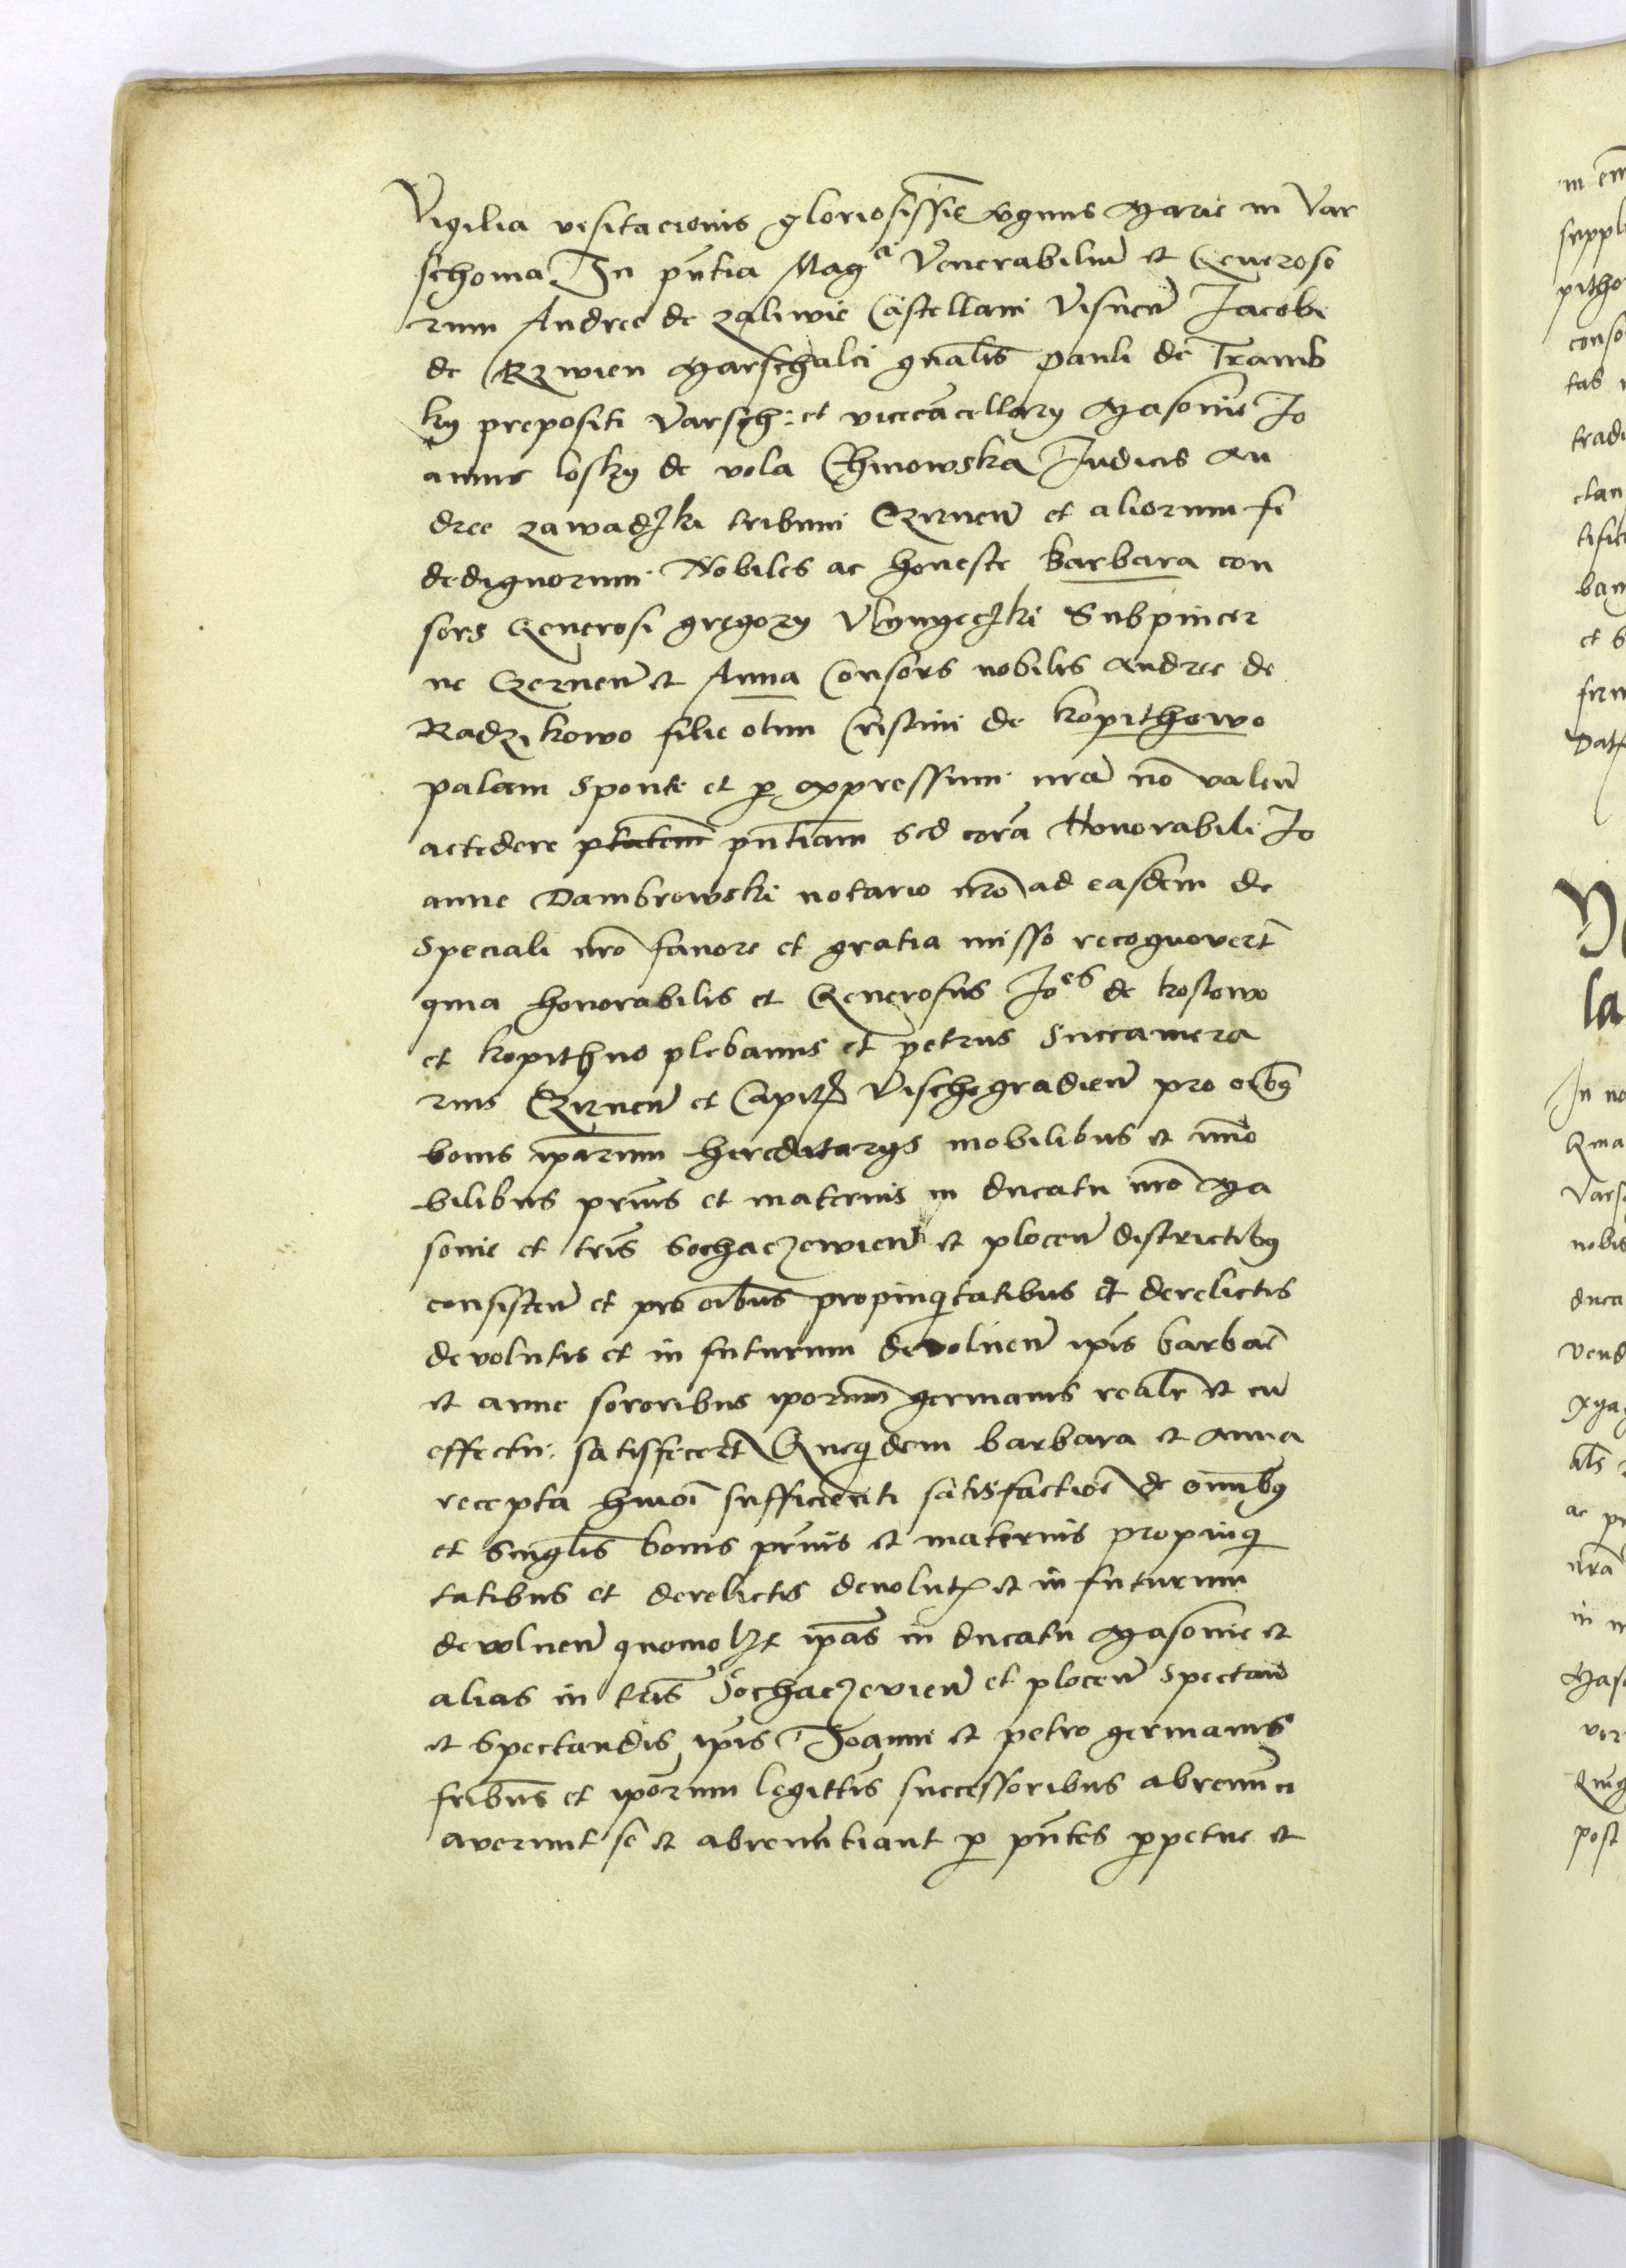 Vigilia visitacionis gloriosissīe v̄gīnis Marie in Var
schovia In pn̄tia Magᵃ Venerabiliū et Generoso
rum Andree de zaliwie Castellani Visneñ Jacobi
de Rzwien Marschalci gn̄alis pauli de Tramb
ky prepositi Varsch: et vicecācellary Masovie Jo
annis losky de vola Chinowska Judicis An
dree zawadzki tribuni Czirneñ et aliorum fi
dedignorum Nobiles ac honeste barbara con
sors Generosi gregory Ulynyeczki Subpincer
ne Czerneñ et Anna Consors nobilis Andree de
Radzikowo filie olim Cristini de kopithowo
palam sponte et p expressum nrā nō valeñ
accedere pn̄tiam sed corā Honorabili Jo
anne Dambrowski notario nrō ad easdem de
speciali nrō favore et gratia misso recognovert̄
quia honorabilis et Generosus Joēs de kosсowo
et kopithno plebanus et petrus Succamera
rius Czirneñ et Capit Vischegradieñ pro oībq
bonis ip̄arum hereditarys mobilibus et īmo
bilibus pr̄nis et maternis in ducatu nrō Ma
sovie et tr̄is Sochaczewieñ et ploceñ districtibq
consisteñ et prō oībus propinqitatibus et derelictis
devolutis et in futurum devolveñ ip̄is barbāē
et anne sororibus ip̄orum germanis realr̄ et cū
effectu satisfecert̄ Queqdem barbara et Anna
recepta hmōi sufficienti satisfactiōē de omībq
et singl̄is bonis pr̄nis et maternis propinqi
tatibus et derelictis devolut et in futurum
devolveñ quomolzt ip̄as in ducatu Masovie et
alias in tr̄is Sochaczevieñ et ploceñ spectañ
et spectandis ip̄is Joanni et petro germanis
frībus et ip̄orum legittīs successoribus abrenūci
averunt se et abrenūtiant p pn̄tes ppetue et